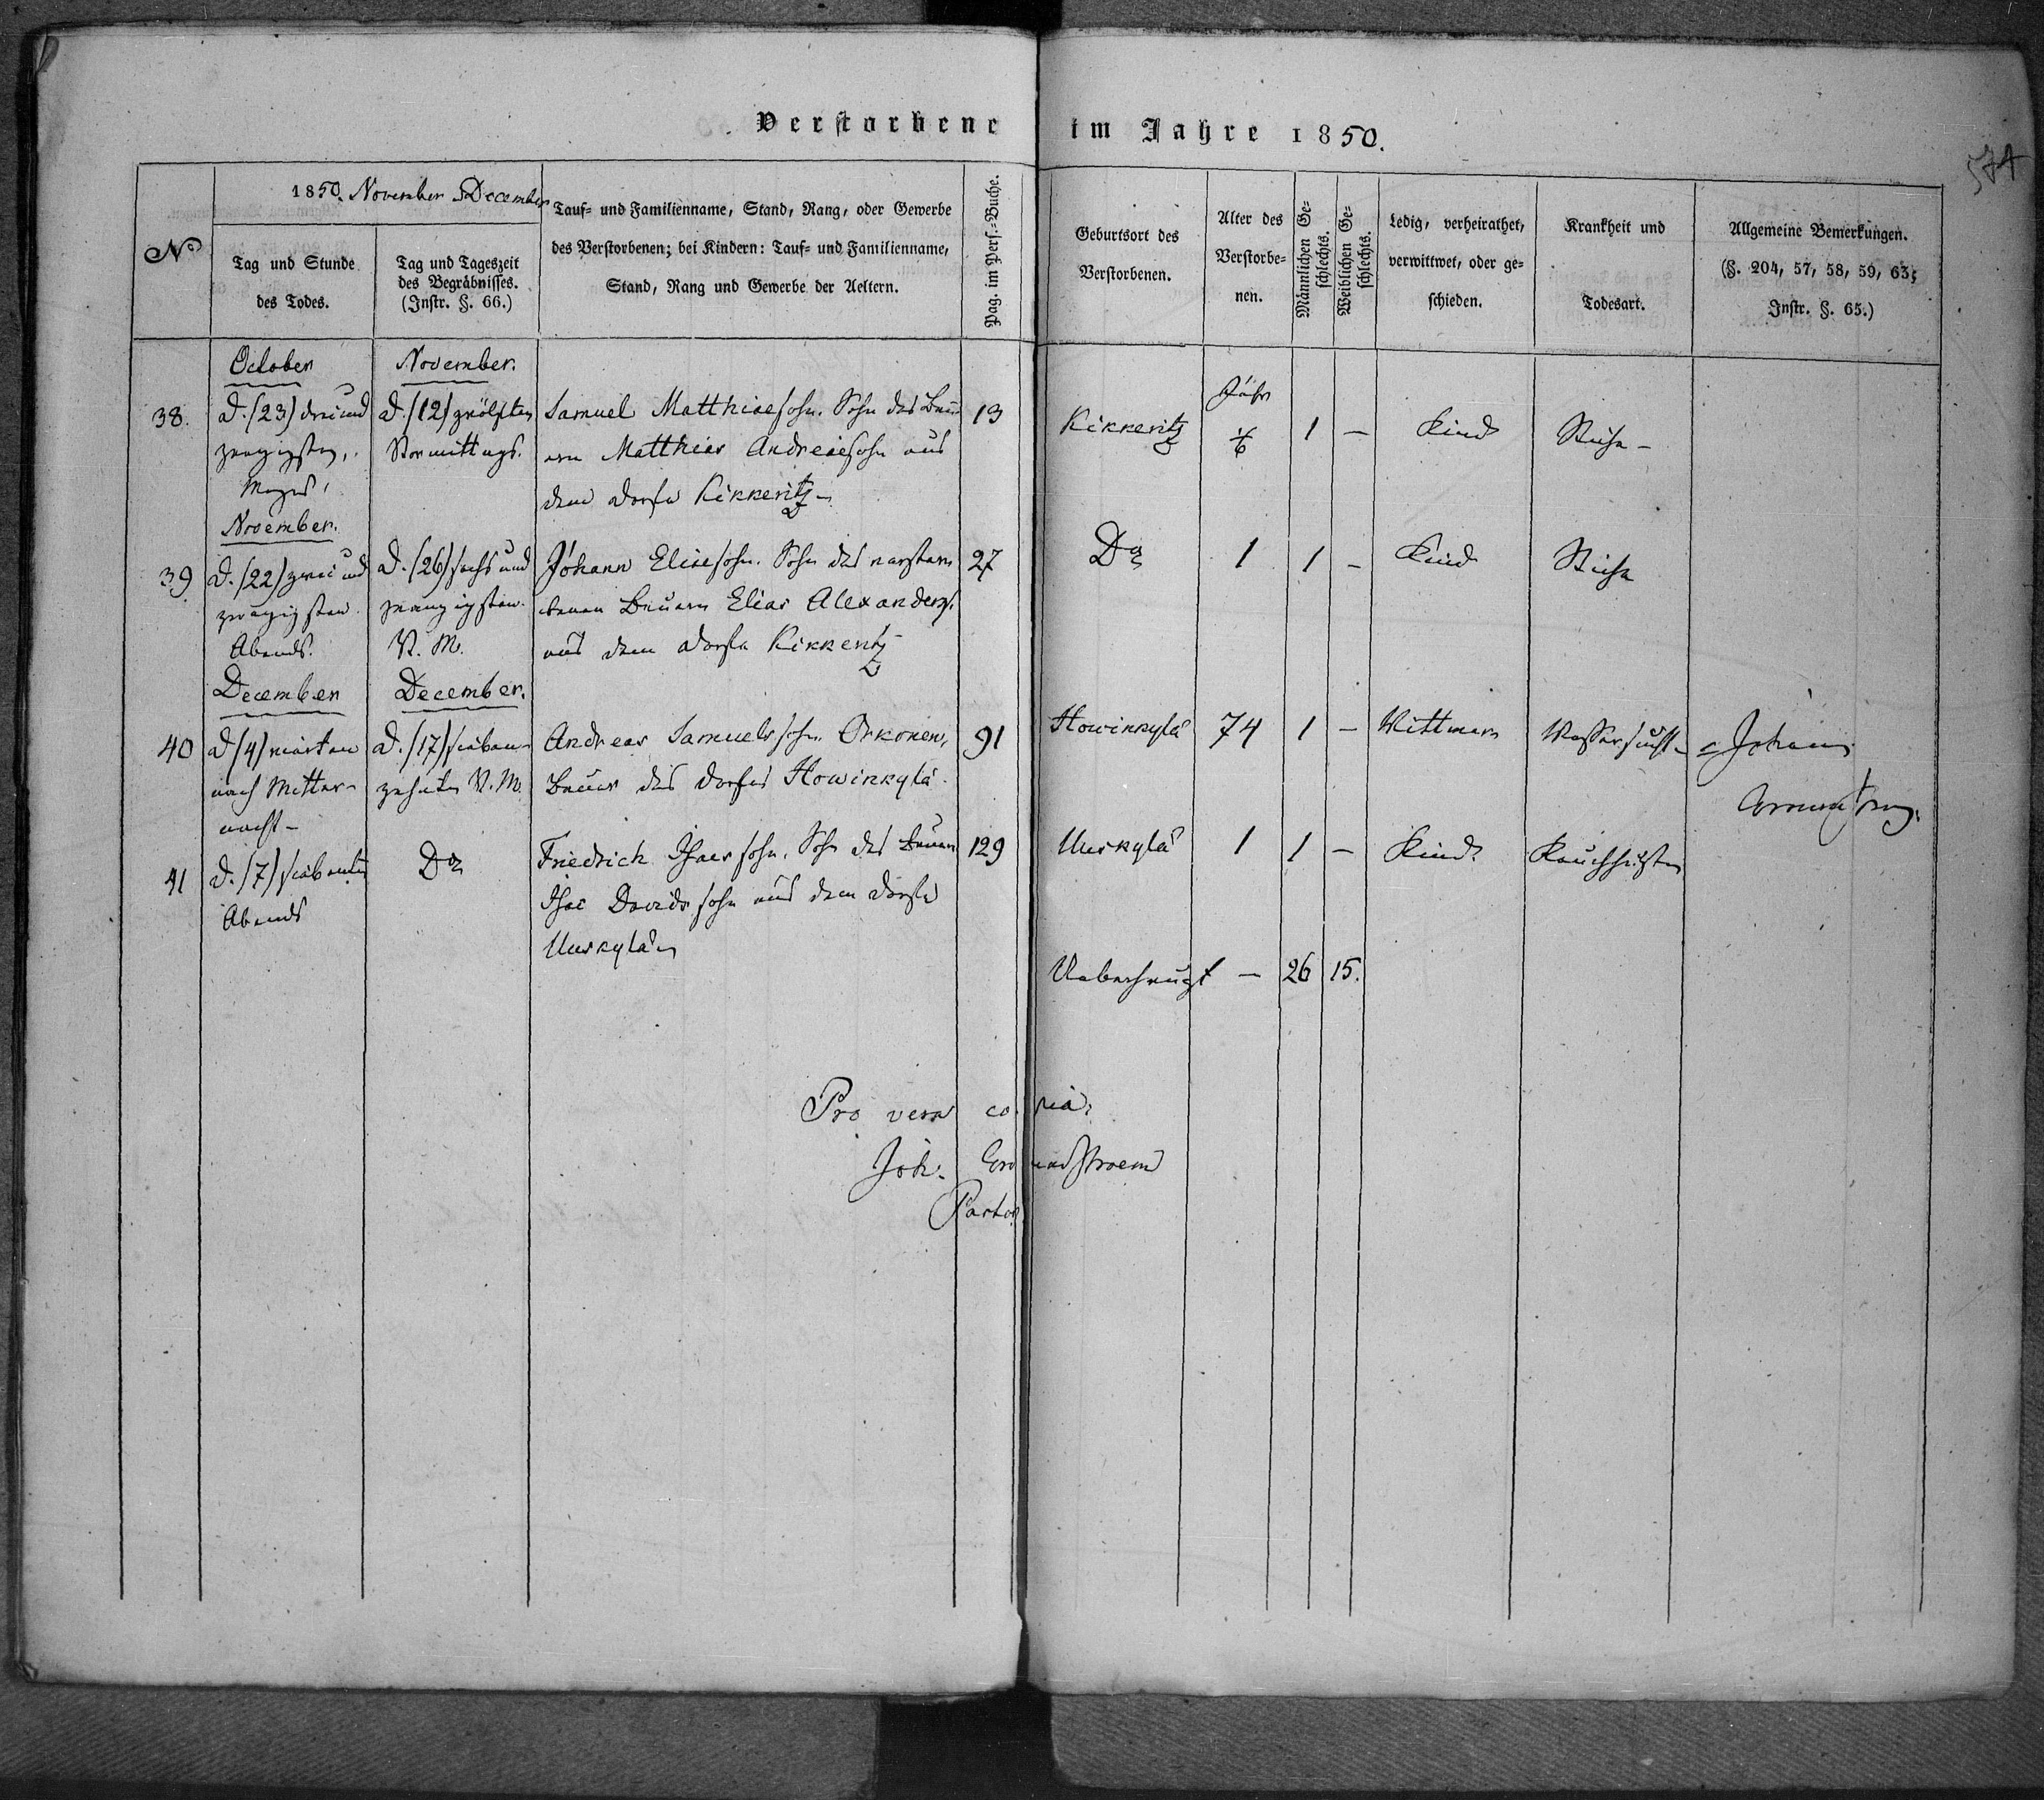 Verstorbene im Jahre 1850.
574
No
1850. November December
Tag und Stunde
des Todes.
Tag und Tageszeit
des Begräbnisses.
(Instr. §. 66.)
Tauf- und Familienname, Stand, Rang, oder Gewerbe
des Verstorbenen; bei Kindern: Tauf- und Familienname,
Stand, Rang und Gewerbe der Aeltern.
Pag. im Pers.-Buche.
Geburtsort des
Verstorbenen.
Alter des
Verstorbe-
nen.
Männlichen Ge-
schlechts.
Weiblichen Ge-
schlechts.
Ledig, verheirathet,
verwittwet, oder ge-
schieden.
Krankheit und
Todesart.
Allgemeine Bemerkungen.
(§. 204, 57, 58, 59, 63;
Instr. §. 65.)
October
November.
Jahr
38. d. (23) drei und d. (12) zwölften Samuel Matthiaesohn. Sohn des Bau- 13 Kikkeritz 1 — Kind
zwanzigsten, Vormittags. ern Matthias Andreaesohn aus
dem Dorfe Kikkeritz
November.
39 d. (22) zwei und d. (26) sechs und Johann Eliaesohn. Sohn des verstor- 27 Do 1 1 - Kind
zwanzigsten zwanzigsten benen Bauern Elias Alexanders.
Abends. V. M. aus dem Dorfe Kikkeritz
December December.
40 d (4) vierten d. (17) sieben- Andreas Samuelssohn Orkonen, 91 Howinkylä 74 1 — Wittwer Wassersucht -
nach Mitter- zehnten V. M. Bauer des Dorfes Howinkylä.
nacht -
41 d. (7) siebenten Do Friedrich Isaacssohn. Sohn des Bauern 129 Uuskylä 1 1 — Kind
Abends Isac Davidssohn aus dem Dorfe
Uuskylä
Ueberhaupt — 26 15.
Pro vera copia:
Joh. Groundstroem
Pastor